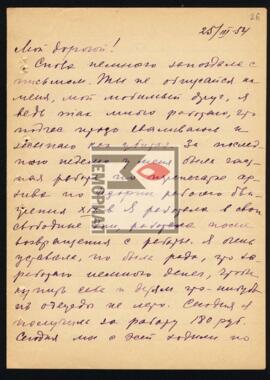 26
25/III-54
Мой дорогой!
Снова немного запоздала с
письмом. Ты не обижайся на
меня, мой любимый друг, я
ведь так много работаю, что
подчас просто сваливаюсь и
засыпаю как убитая. За послед-
нюю неделю у меня была
работа по
архива по истории рабочего дви-
жения XIX в. Я работала в свои
свободные дни, работала после
возвращения с работы. Я очень
уставала, но была рада, что за-
работаю немного денег, чтобы
купить себе и детям что-нибудь
из одежды на лето. Сегодня я
получила за работу 180 руб.
Сегодня мы с Эрст ходили по
МЕМОРИАЛ